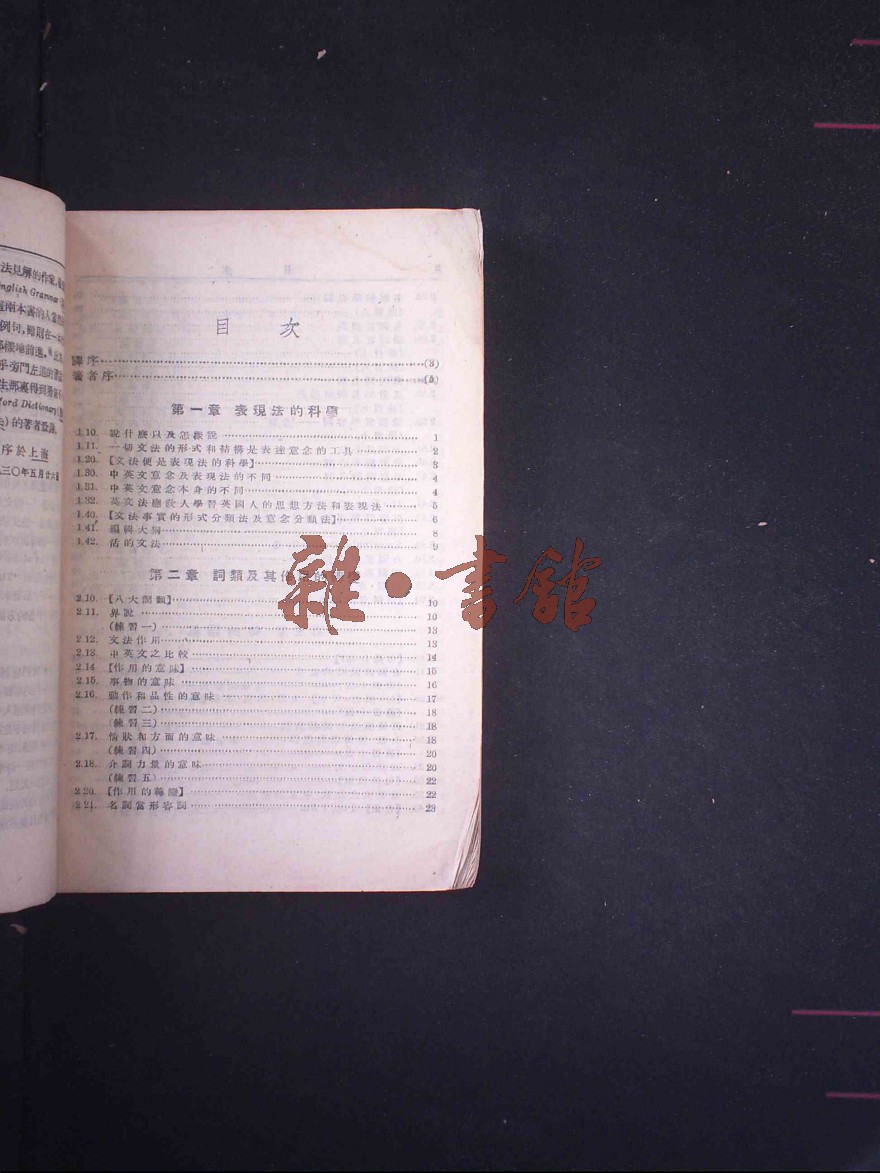 法見解的作家
English Grammar
例句
序於上海
三〇年五月廿六
目 次
譯序 (3)
著者序 (5)
第一章 表現法的科學
1.10. 說什麼以及怎樣說 1
1.11. 一切文法的形式和結構是表達意念的工具 2
1.20. 【文法便是表現法的科學】 3
1.30. 中英文意念及表現法的不同 4
1.31. 中英文意念本身的不同 4
1.32. 英文法應教人學習英國人的思想方法和表現法 5
1.40. 【文法事實的形式分類法及意念分類法】 6
1.41. 編輯大綱 8
1.42. 活的文法 9
第二章 詞類及其
2.10. 【八大詞類】 10
2.11. 界說 10
(練習一) 13
2.12. 文法作用 13
2.13. 中英文之比較 14
2.14 【作用的意味】 15
2.15. 事物的意味 16
2.16. 動作和品性的意味 17
(練習二) 18
(練習三) 18
2.17. 情狀和方面的意味 18
(練習四) 20
2.18. 介詞力量的意味 20
(練習五) 22
2.20. 【作用的轉變】 22
2.21. 名詞當形容詞 23
雜·書館